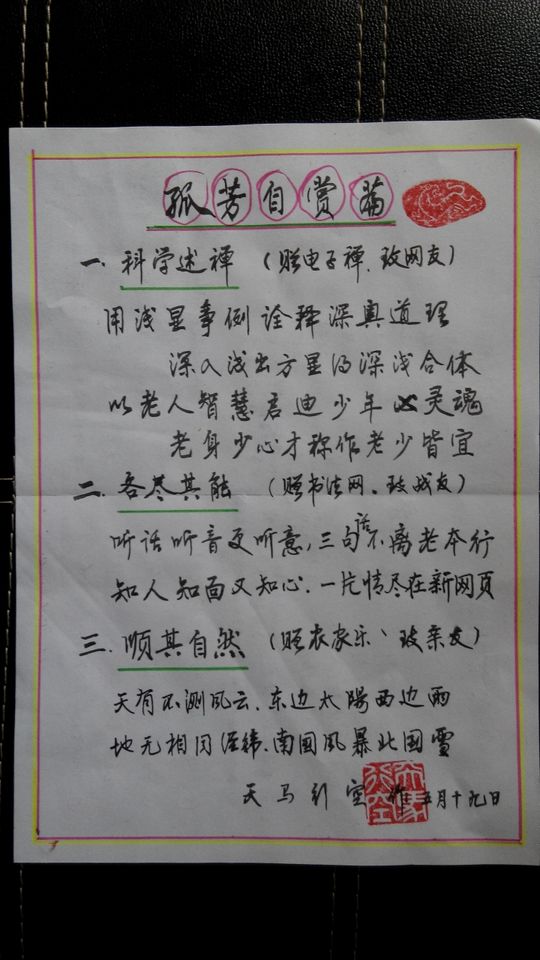 孤芳自赏篇
一. 科学述禅 (赠电子禅、致网友)
用浅显事例诠释深奥道理
深入浅出方显得深浅合体
以老人智慧启迪少年灵魂
老身少心才称作老少皆宜
二. 各尽其能 (赠书法网、致战友)
听话听音更听意,三句话不离老本行
知人知面又知心.一片情尽在新网页
三. 顺其自然 (赠农家乐、致亲友)
天有不测风云.东边太陽西边雨
地无相同经纬.南国风暴北国雪
天马行空 作 五月十九日
天马行空